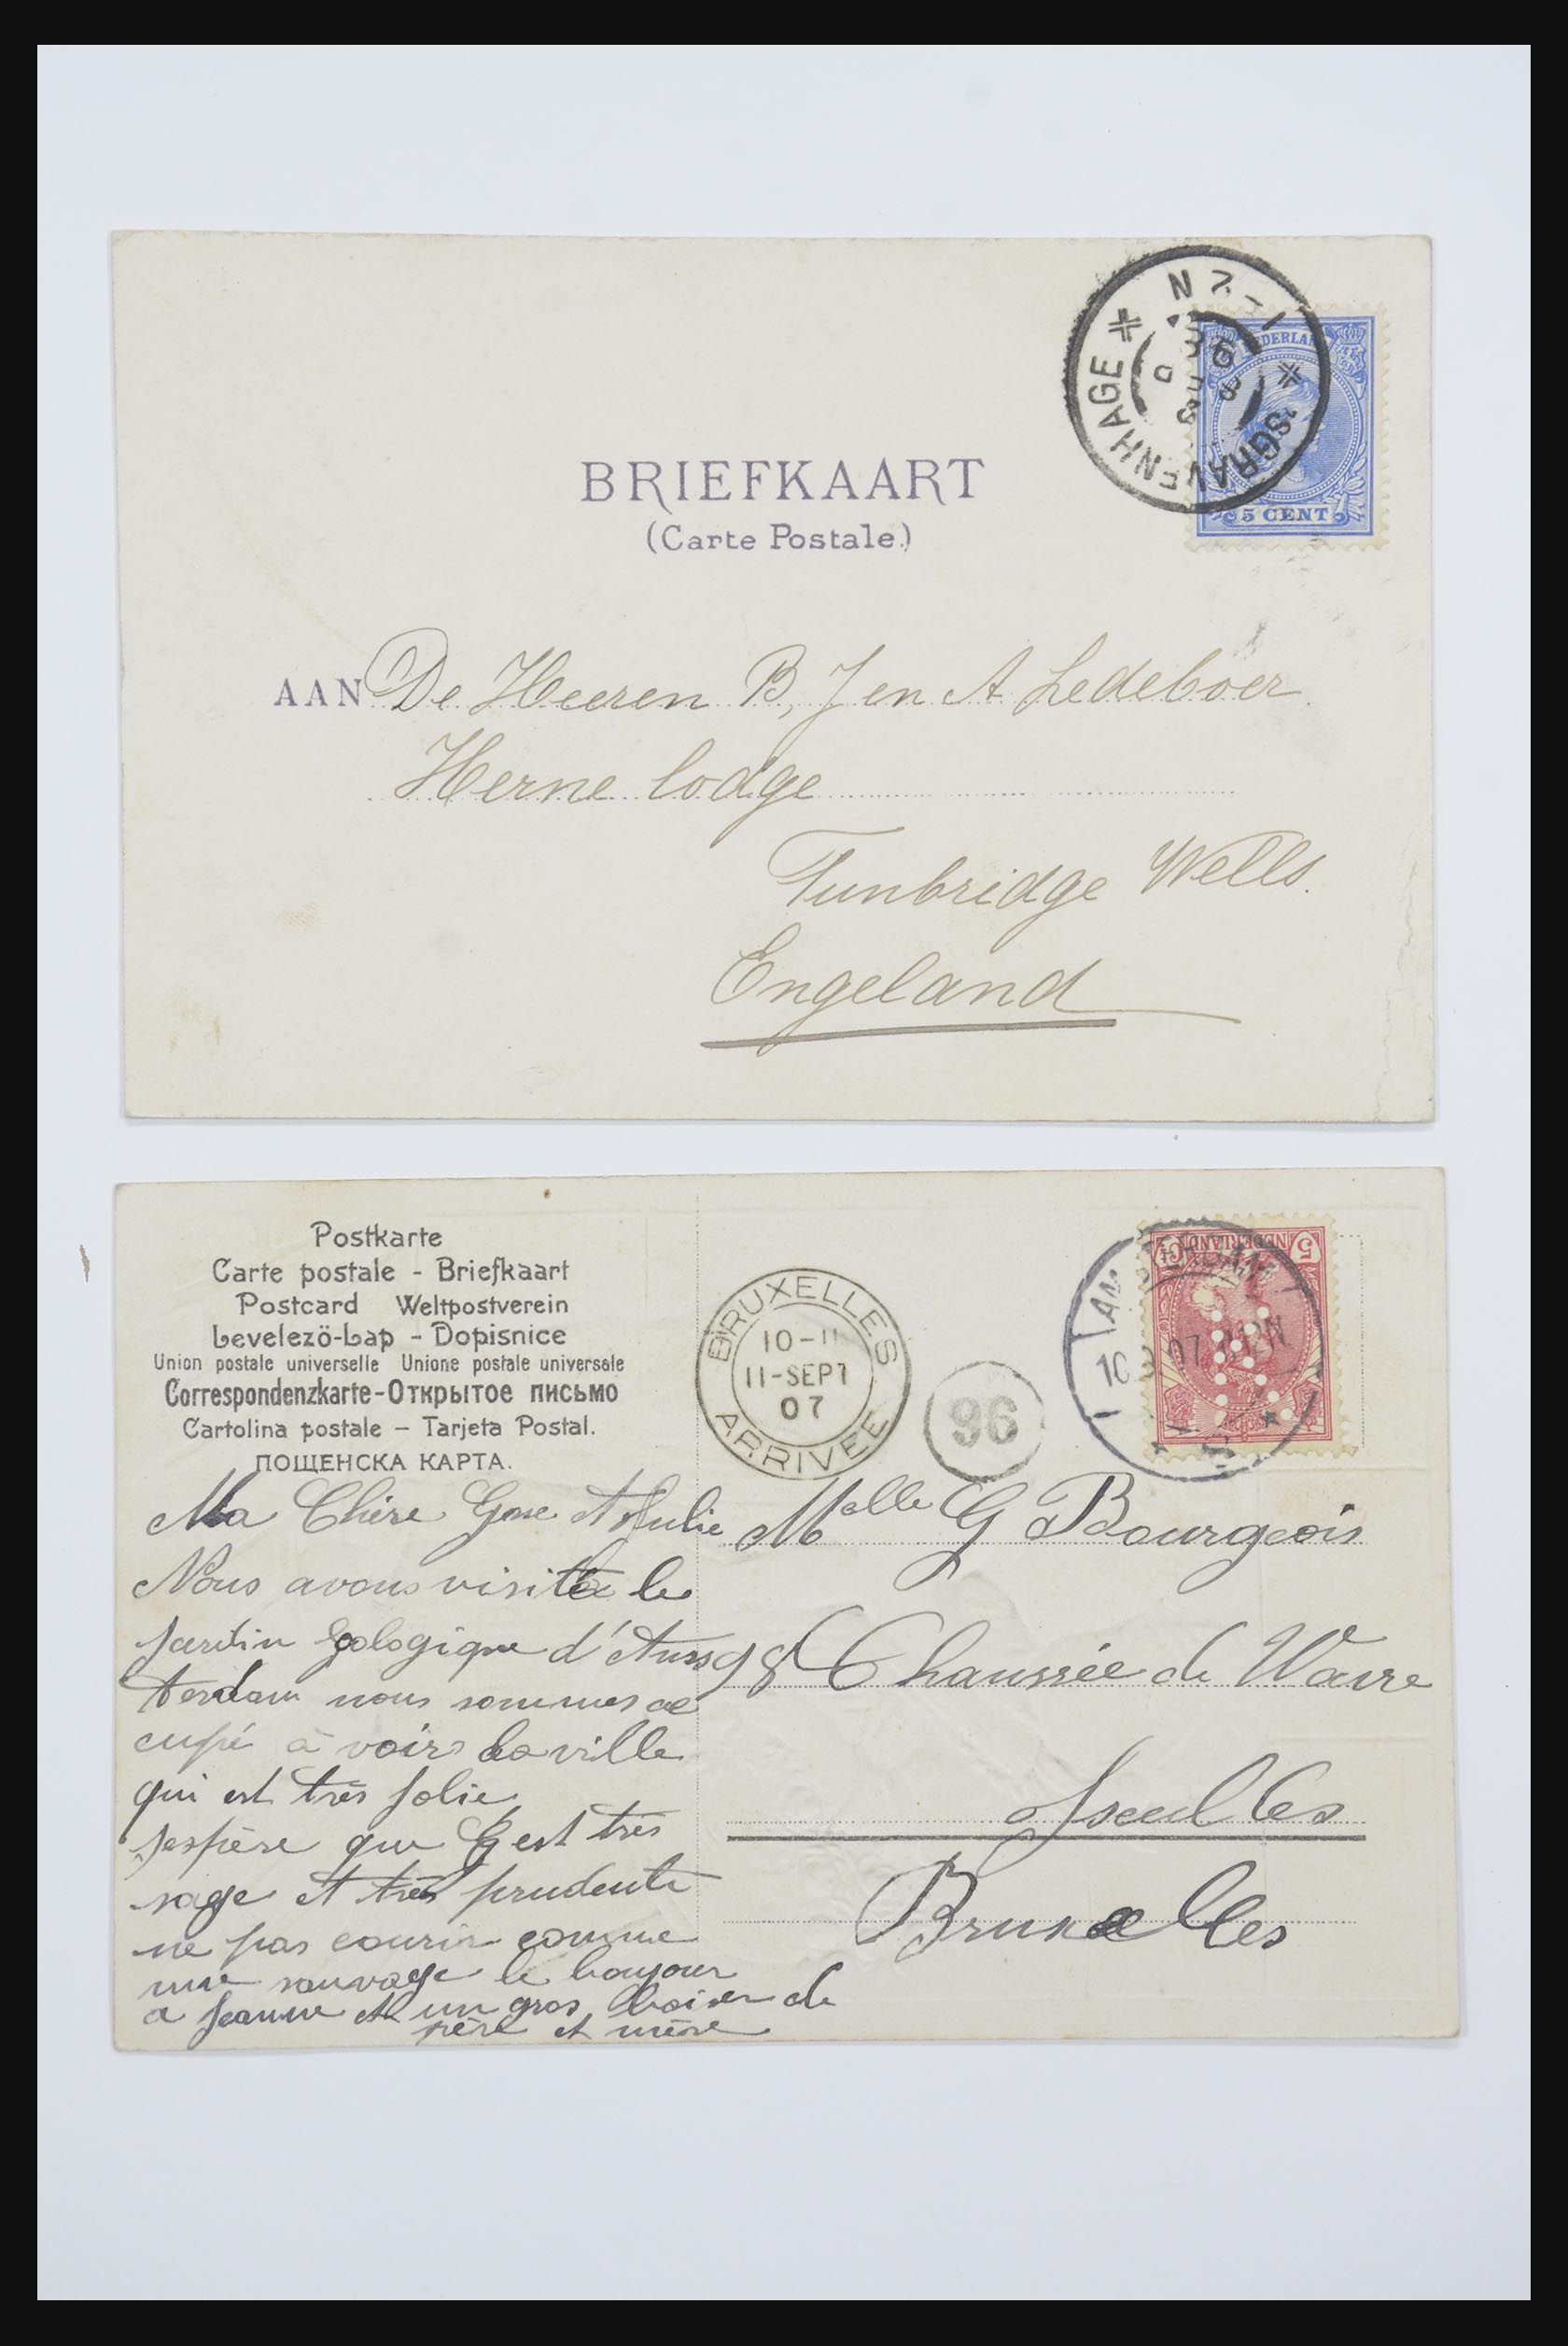 'sGRAVENHAGE
NEDERLAND
5 CENT
BRIEFKAART
(Carte Postale.)
AAN De Heeren B, J en A Ledeboer
Herne lodge
Tunbridge Wells.
Engeland
Postkarte
Carte postale - Briefkaart
Postcard Weltpostverein
Levelezö-Lap - Dopisnice
Union postale universelle Unione postale universale
Correspondenzkarte-Открытое письмо
Cartolina postale – Tarjeta Postal.
ПОЩЕНСКА КАРТА.
BRUXELLES
10-11
11-SEPT
07
ARRIVEE
96
NEDERLAND
5
Ma Chère et Julie
Nous avons visité le
Jardin Zoologique d'Ams
terdam nous sommes oc
cupé à voir la ville
qui est très jolie
j'espère que G est très
sage et très prudente
ne pas courir comme
une sauvage le bonjour
a Jeanne et un gros baiser de
père et mère
Melle G Bourgeois
98 Chaussée de Wavre
Ixelles
Bruxelles